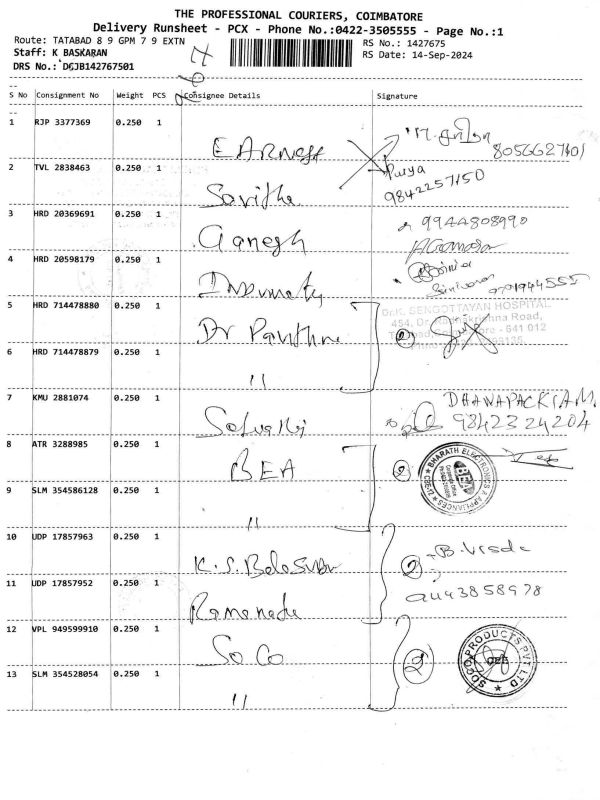 THE PROFESSIONAL COURIERS, COIMBATORE
Delivery Runsheet - PCX - Phone No.:0422-3505555 - Page No.:1
Route: TATABAD 8 9 GPM 7 9 EXTN RS No.: 1427675
Staff: K BASKARAN RS Date: 14-Sep-2024
DRS No.: DCJB142767501
S No Consignment No Weight PCS Consignee Details Signature
1 RJP 3377369 0.250 1
EARNest
8056627401
2 TVL 2838463 0.250 1
Priya
Savitha 9842257150
3 HRD 20369691 0.250 1 9944808990
Ganesh
4 HRD 20598179 0.250 1
Srinivasan 9701944555
5 HRD 714478880 0.250 1 Dr.K. SENGOTTAYAN HOSPITAL
Dr 454, Dr. Radhakrishna Road,
Tatabad, Coimbatore - 641 012
2
6 HRD 714478879 0.250 1
"
7 KMU 2881074 0.250 1 DHANAPACKIAM.
9842324204
8 ATR 3288985 0.250 1
BEA 2 BHARATH ELECTRONICS & APPLIANCES CBE-12
9 SLM 354586128 0.250 1
"
10 UDP 17857963 0.250 1
K.S. Balasubr 2
11 UDP 17857952 0.250 1
12 VPL 949599910 0.250 1
SoCo 2 SOCO PRODUCTS PVT LTD
CBE
13 SLM 354528054 0.250 1
"